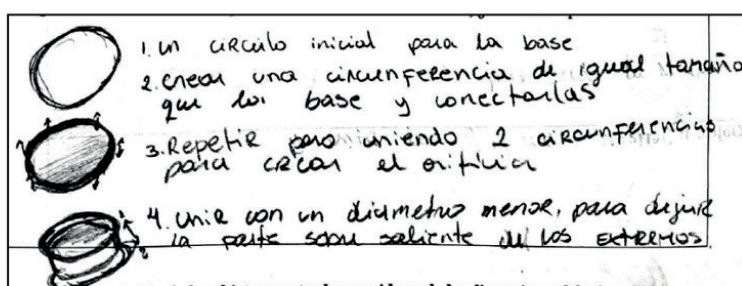 1. un círculo inicial para la base
2. crear una circunferencia de igual tamaño
que la base y conectarlas
3. Repetir pero uniendo 2 circunferencias
para crear el orificio
4. Unir con un diámetro menor, para dejar
la parte sobre saliente de los EXTREMOS